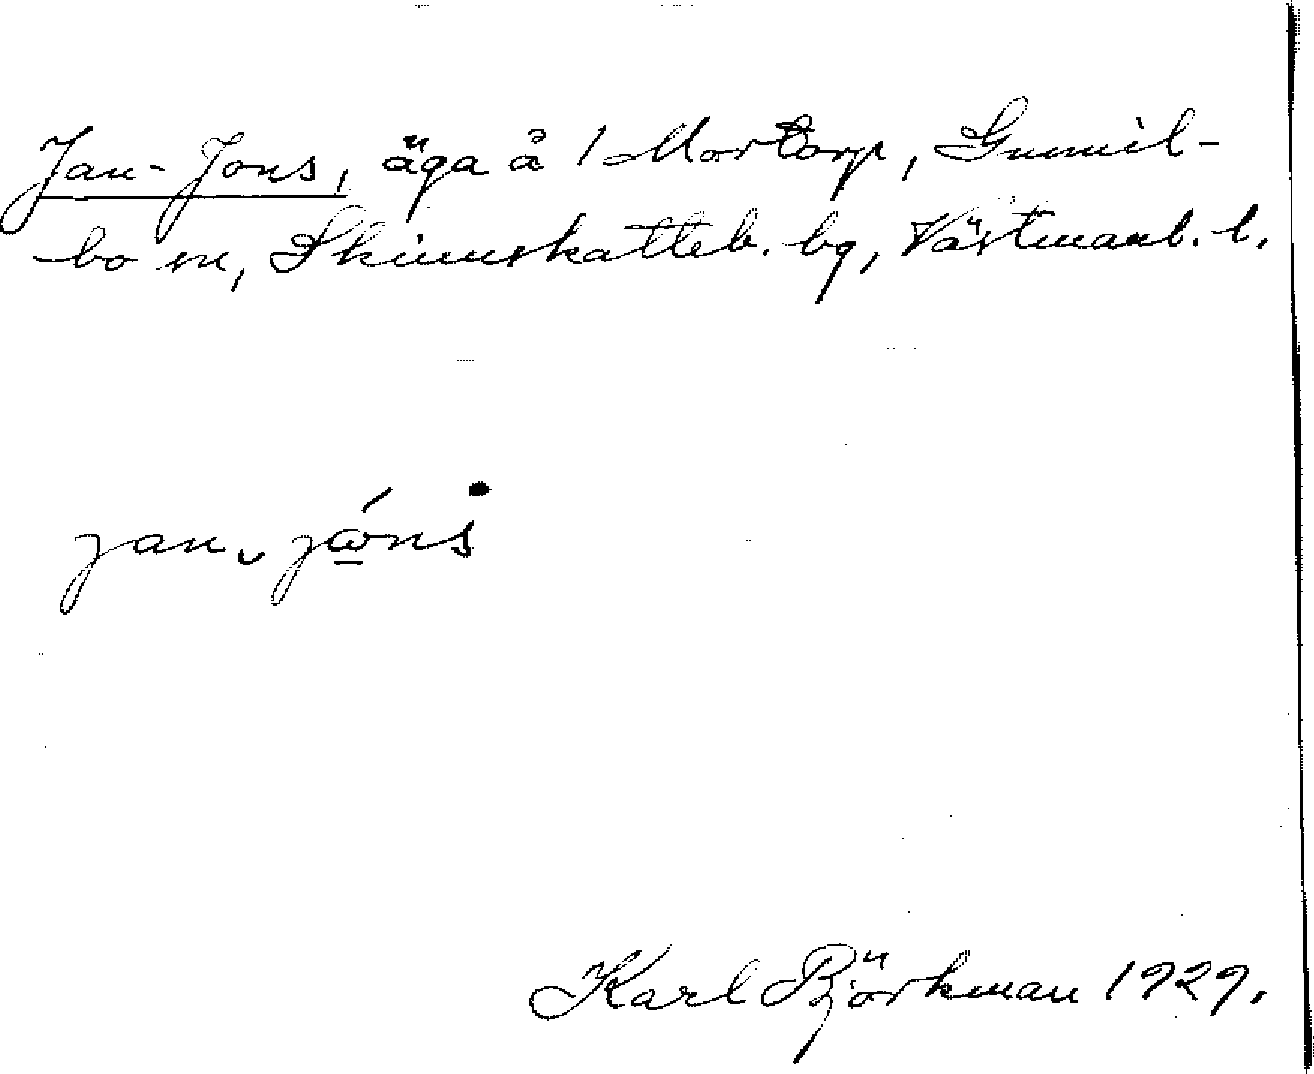 Jan-Jons, äga å 1 Mortorp, Gunnil-
bo sn, Skinnskatteb. bg, Västmanl. l.
jan. jóns
Karl Björkman 1929.